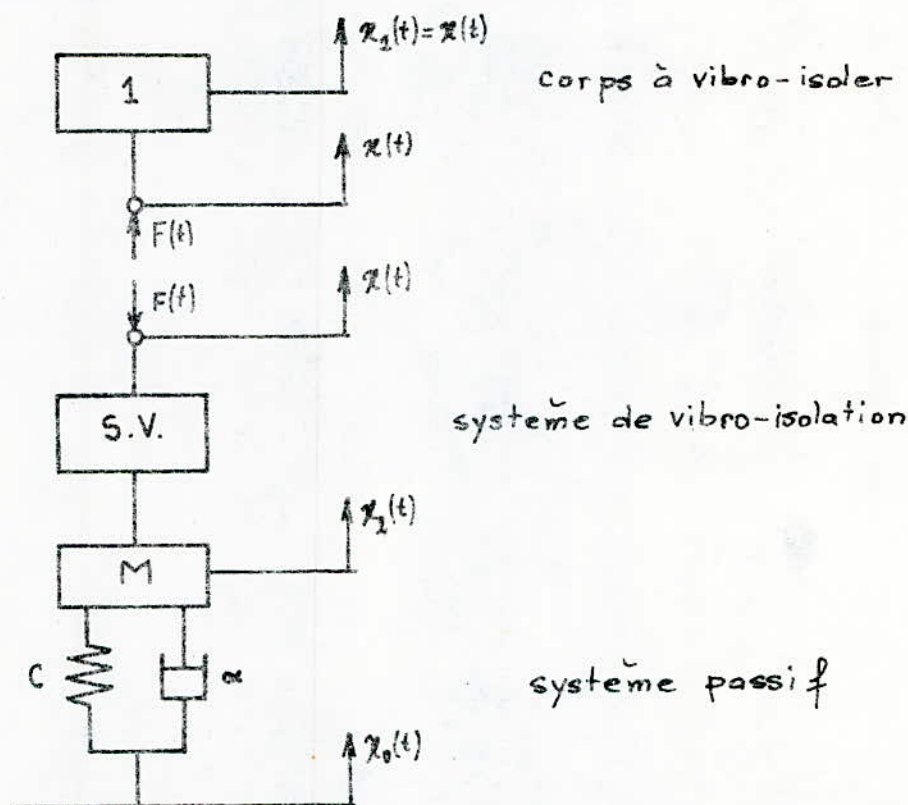 x₁(t)=x(t)
1
corps à vibro-isoler
x(t)
F(t)
x(t)
F(t)
S.V.
système de vibro-isolation
x₂(t)
M
C
α
système passif
x₀(t)